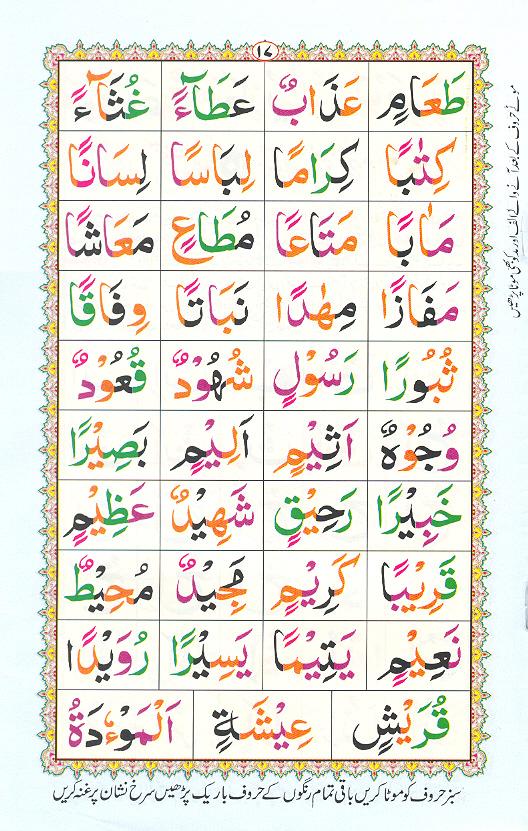 ١٧
طَعَامٍ عَذَابٌ عَطَآءً غُثَآءً
كِتٰبًا كِرَامًا لِبَاسًا لِسَانًا
مَاٰبًا مَتَاعًا مُطَاعٍ مَعَاشًا
مَفَازًا مِهٰدًا نَبَاتًا وِفَاقًا
ثُبُوْرًا رَسُوْلٍ شُهُوْدٌ قُعُوْدٌ
وُجُوْهٌ اَثِيْمٍ اَلِيْمٍ بَصِيْرًا
خَبِيْرًا رَحِيْقٍ شَهِيْدٌ عَظِيْمٍ
قَرِيْبًا كَرِيْمٍ مَجِيْدٌ مُحِيْطٌ
نَعِيْمٍ يَتِيْمًا يَسِيْرًا رُوَيْدًا
قُرَيْشٍ عِيْشَةٍ اَلْمَوْءٗدَةُ
سبز حروف کو موٹا کریں باقی تمام رنگوں کے حروف باریک پڑھیں سرخ نشان پر غنہ کریں
موٹے حروف کے بعد آنے والے الف اور مد کو بھی موٹا پڑھیں